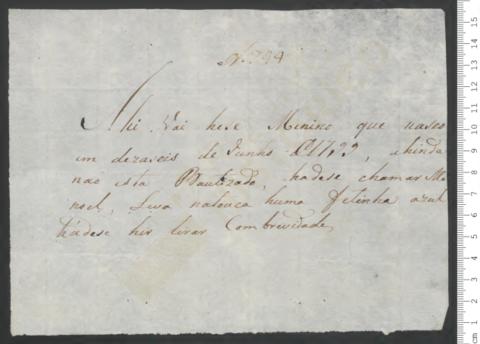 Nº 794
Ahi Vai hese Menino que nasco
em dezaseis de Junho d 1799, ahinda
nao esta Bautizado, hadese chamar Ma
noel, Leva natouca huma fitinha azul
hádese hir tirar Com brevidade,